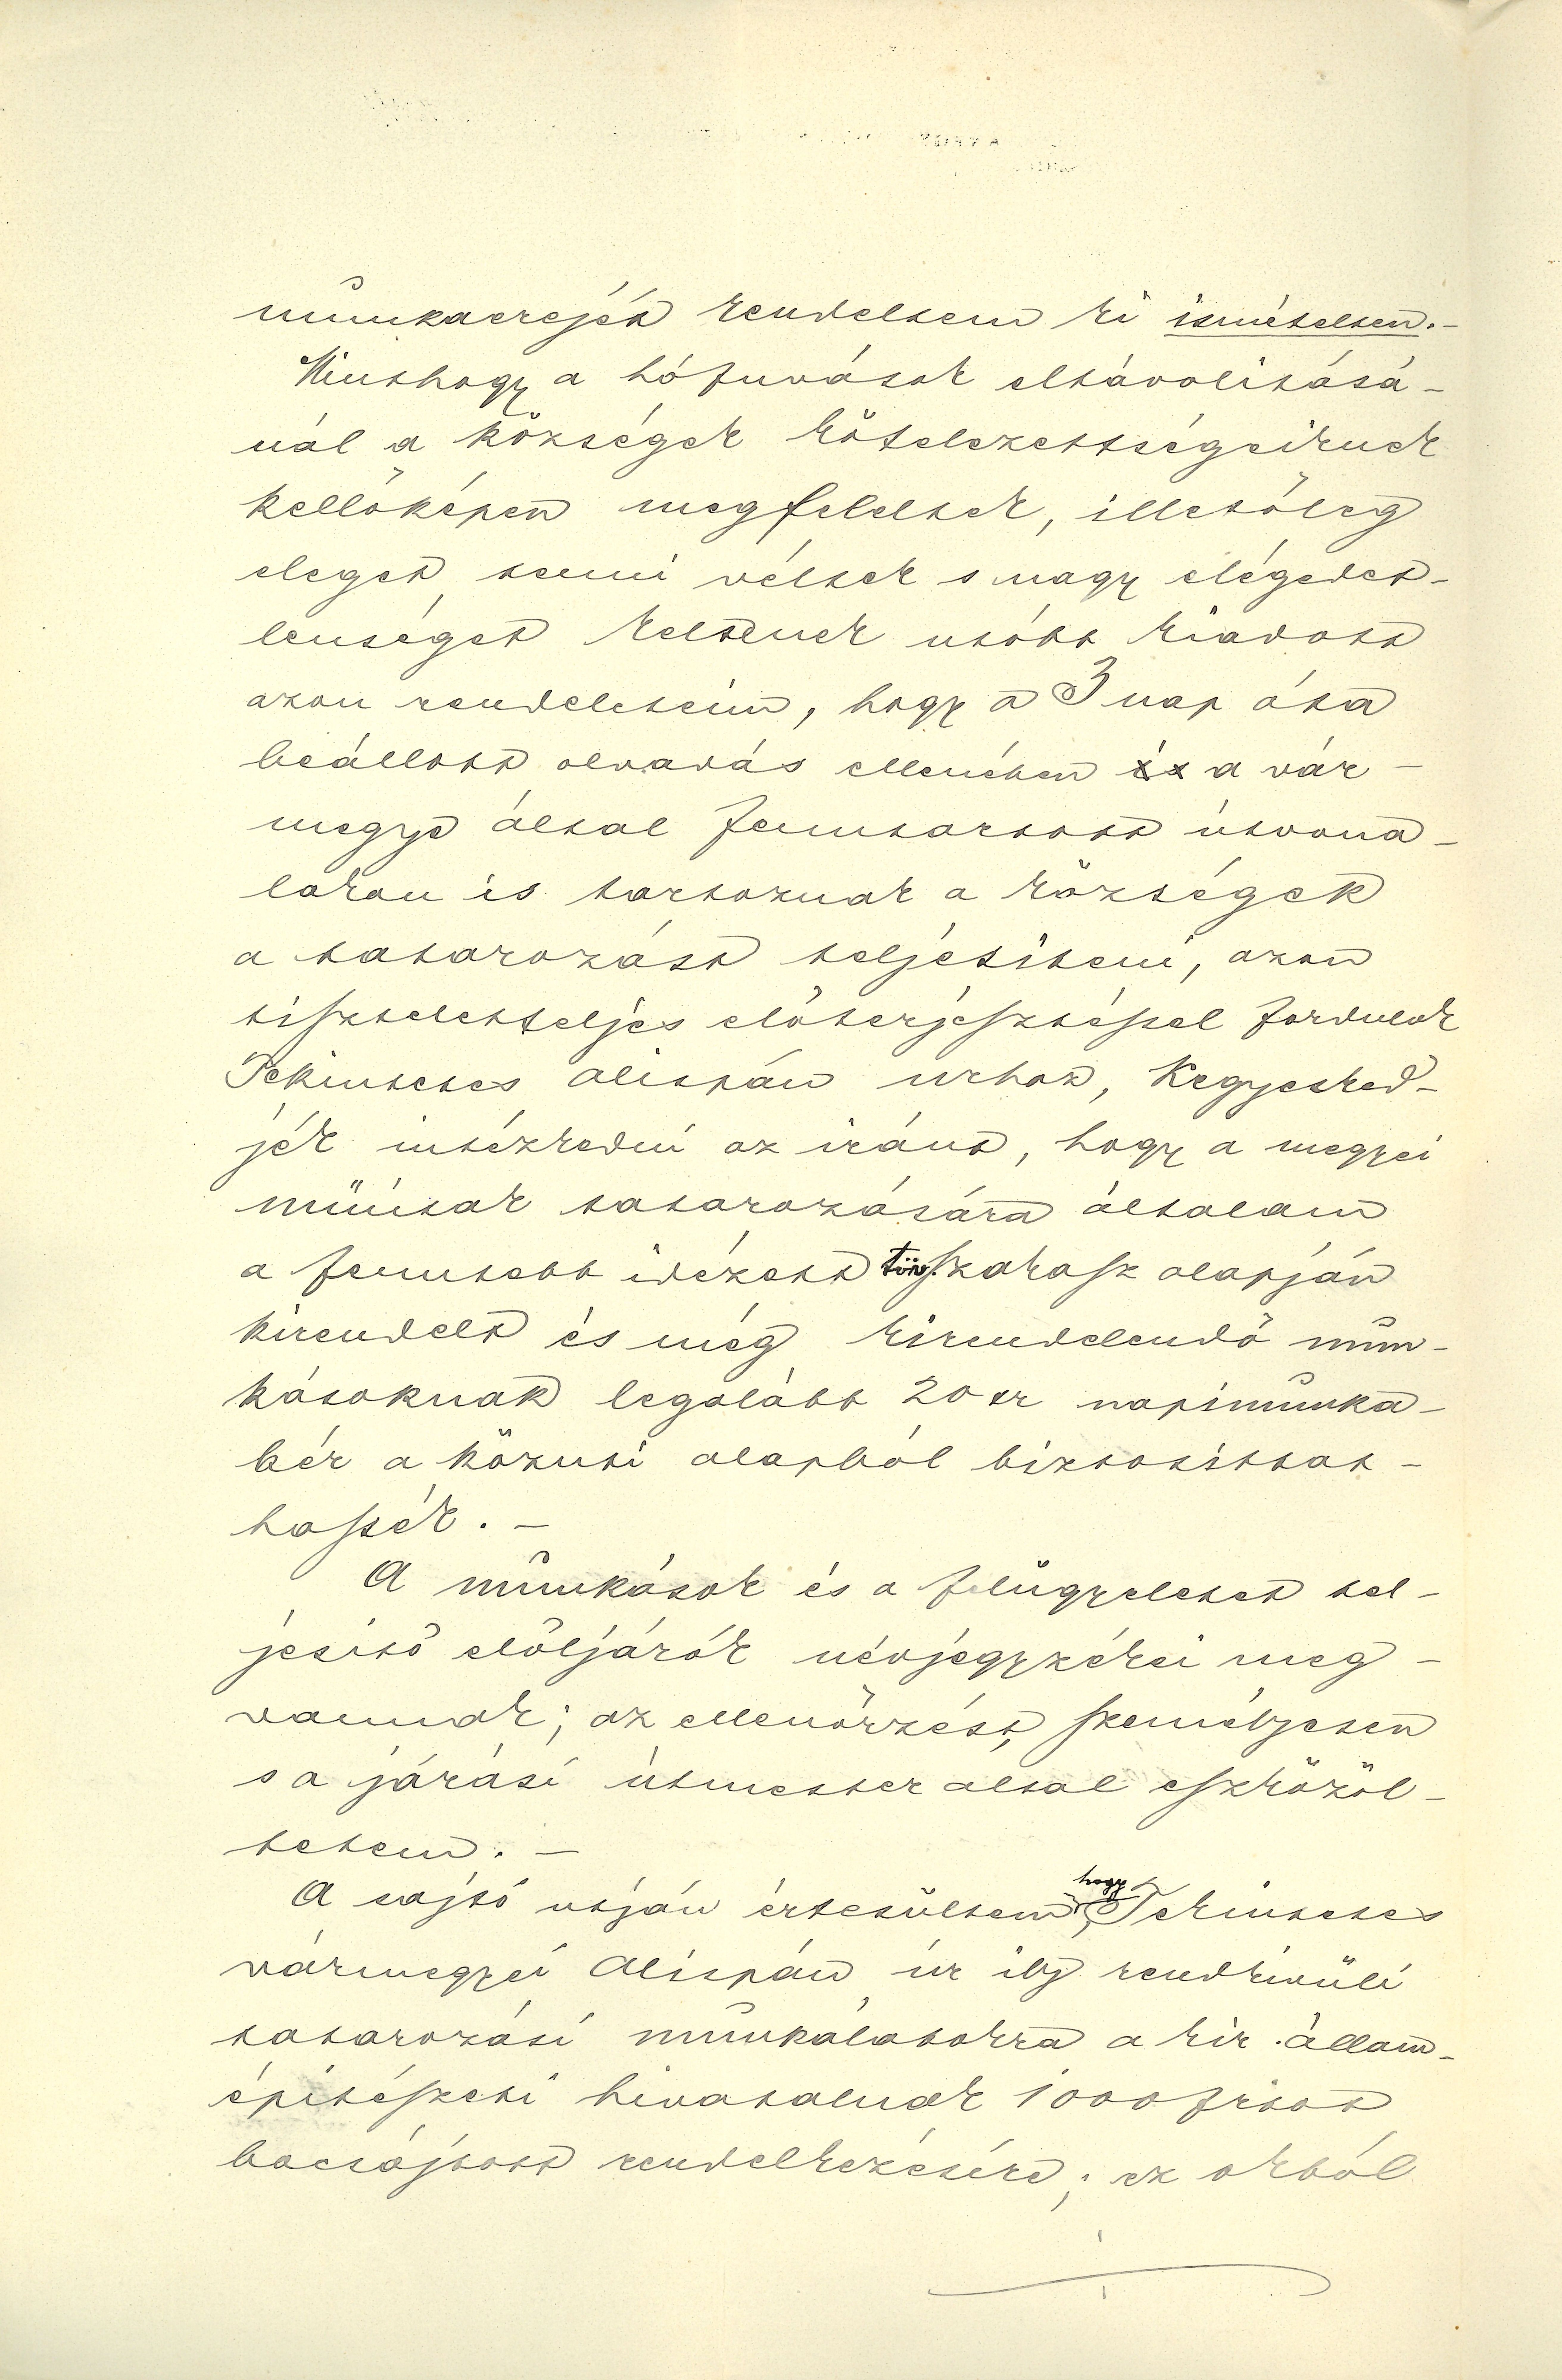 munkaerejét rendeltem ki ismételten. –
Minthogy a hófuvások eltávolitásá-
nál a községek kötelezettségeiknek
kellőképen megfeleltek, illetőleg
eleget tenni véltek s nagy elégedet-
lenséget keltenek utóbb kiadott
azon rendeleteim, hogy a 3 nap óta
beállott olvadás ellenében a vár-
megye által fenntartott útvona-
lakon is tartoznak a községek
a takarozást teljesiteni, azon
tiszteletteljes előterjesztéssel fordulok
Tekintetes alispán urhoz, kegyesked-
jék intézkedni az iránt, hogy a megyei
műutak takarozására általam
a fenntebb idézett törv. szakasz alapján
kirendelt és még kirendelendő mun-
kásoknak legalább 20 kr napimunka-
bér a közuti alapból biztosittat-
hassék. –
A munkások és a felügyeletet tel-
jesitő előljárók névjegyzékei meg-
vannak; az ellenőrzést, személyesen
s a járási útmester által eszközöl-
tetem. –
A sajtó utján értesültem, hogy Tekintetes
vármegyei Alispán úr ily rendkivüli
takarozási munkálatokra a kir. állam-
épitészeti hivatalnak 1000 frtot
bocsájtott rendelkezésére; ez okból